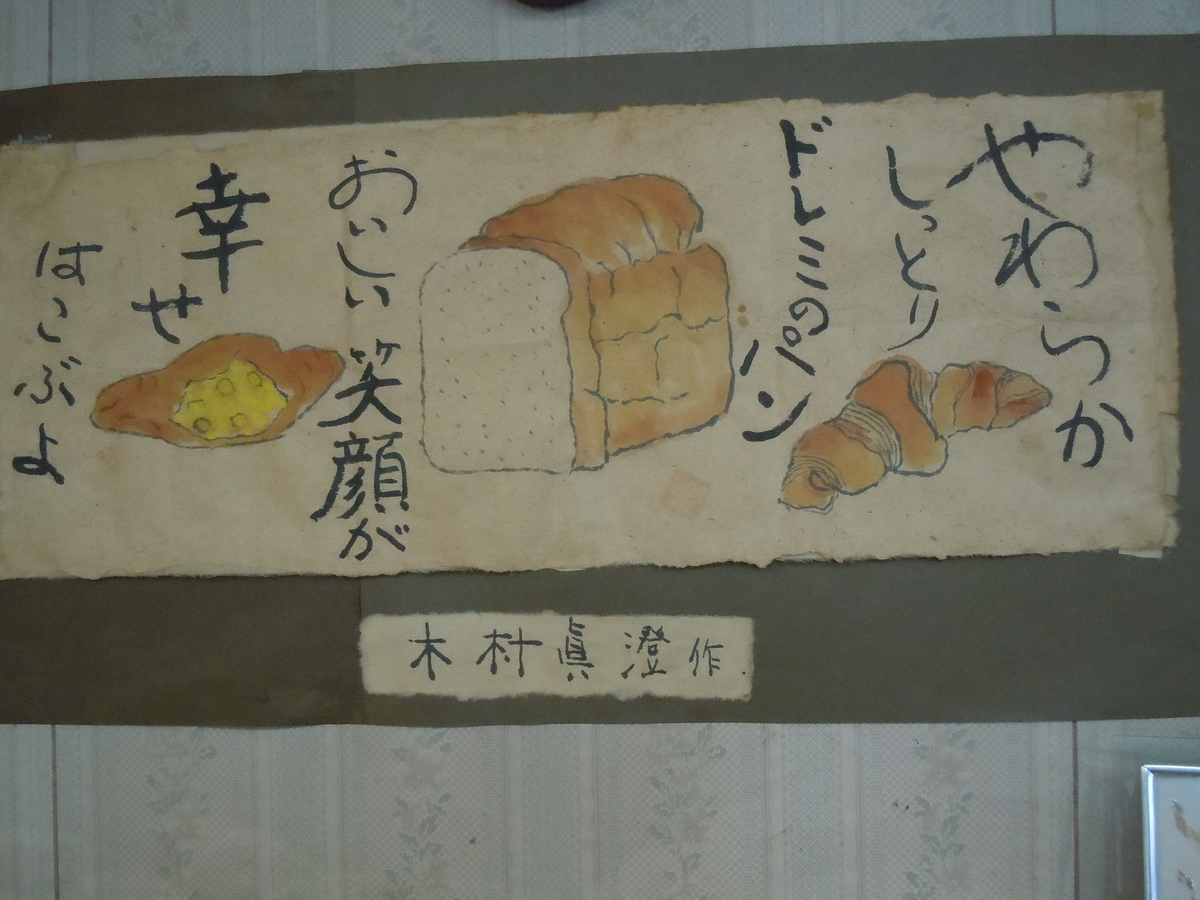 やわらか
しっとり
ドレミのパン
おいしい笑顔が
幸せ
はこぶよ
木村眞澄作